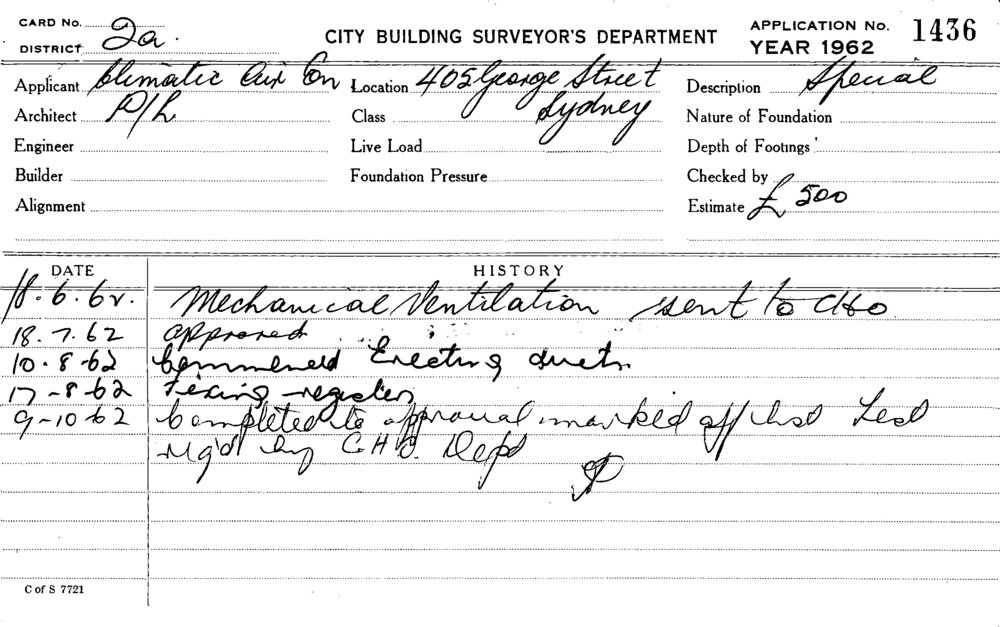 CARD No.
DISTRICT 2a.
CITY BUILDING SURVEYOR'S DEPARTMENT
APPLICATION No. 1436
YEAR 1962
Applicant Climatic Air Con Location 405 George Street Description Special
Architect P/L Class Sydney Nature of Foundation
Engineer Live Load Depth of Footings
Builder Foundation Pressure Checked by
Alignment Estimate £ 500
DATE HISTORY
18.6.62. Mechanical Ventilation sent to CHO
18.7.62 approved
10.8.62 Commenced Erecting ducts
17-8-62 Fixing registers
9-10-62 Completed to approval marked off Test
req'd by C.H.O. Dept
C of S 7721